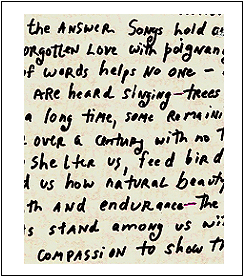 the ANSWER Songs hold
ORGOTTEN LOVE with poignan
f words helps NO ONE –
ARE heard singing—trees
a long time, some REMAINI
over a century with no
shelter us, feed bird
d us how natural beauty
th AND endurance—The
s stand among us wi
COMPASSION to show th